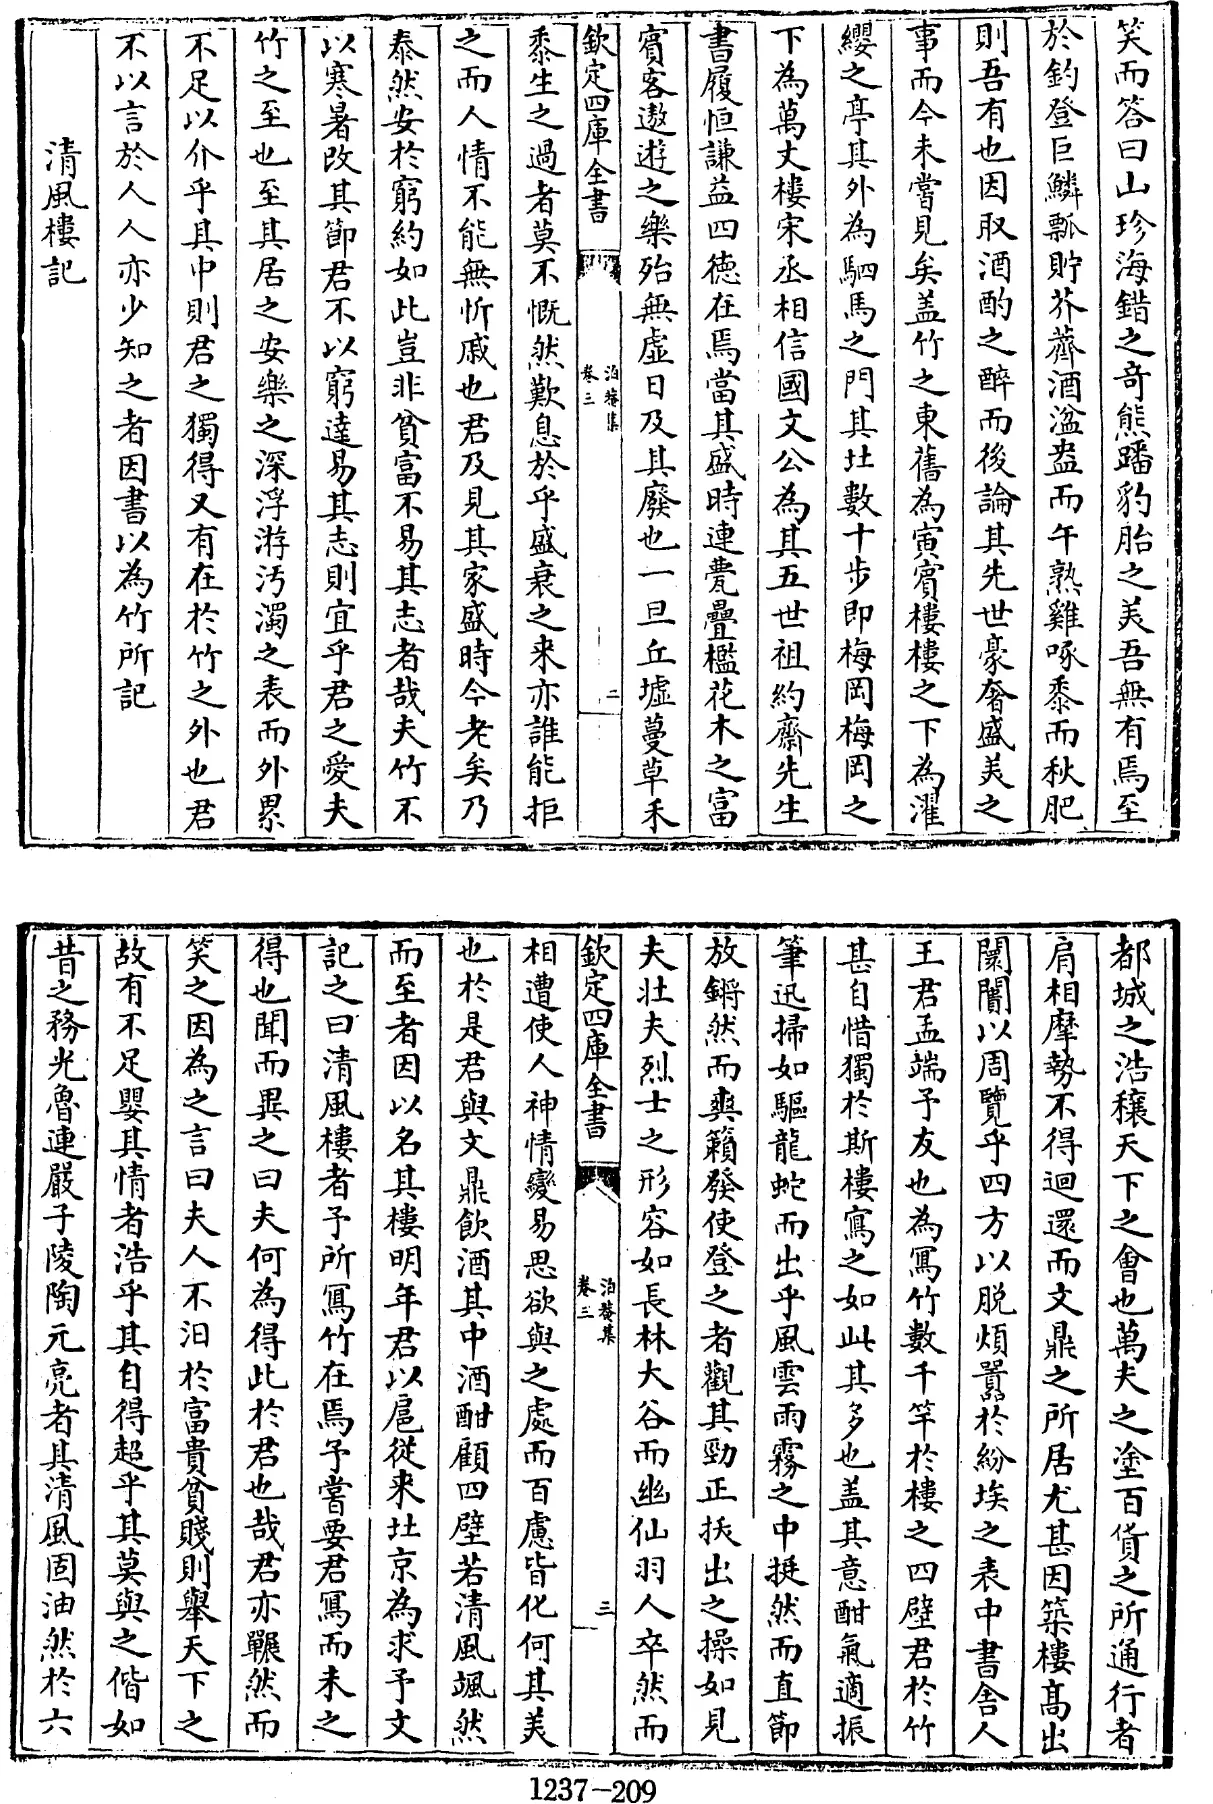 笑而答曰山珍海錯之奇熊蹯豹胎之美吾無有焉至
於釣登巨鱗瓢貯芥薺酒溢盎而午熟雞啄黍而秋肥
則吾有也因取酒酌之醉而後論其先世豪奢盛美之
事而今未嘗見矣盖竹之東舊為寅賓樓樓之下為濯
纓之亭其外為駟馬之門其北數十步即梅岡梅岡之
下為萬丈樓宋丞相信國文公為其五世祖約齋先生
書履恒謙益四德在焉當其盛時連甍疊檻花木之富
賓客遨遊之樂殆無虛日及其廢也一旦丘墟蔓草禾
欽定四庫全書
泊菴集
卷三
二
黍生之過者莫不慨然歎息於乎盛衰之来亦誰能拒
之而人情不能無忻戚也君及見其家盛時今老矣乃
泰然安於窮約如此豈非貧富不易其志者哉夫竹不
以寒暑改其節君不以窮達易其志則宜乎君之愛夫
竹之至也至其居之安樂之深浮游汚濁之表而外累
不足以介乎其中則君之獨得又有在於竹之外也君
不以言於人人亦少知之者因書以為竹所記
清風樓記
都城之浩穰天下之會也萬夫之塗百貨之所通行者
肩相摩勢不得迴還而文鼎之所居尤甚因築樓髙出
闤闠以周覽乎四方以脱煩囂於紛埃之表中書舍人
王君孟端予友也為寫竹數千竿於樓之四壁君於竹
甚自惜獨於斯樓寫之如此其多也盖其意酣氣適振
筆迅掃如驅龍蛇而出乎風雲雨霧之中挺然而直節
放鏘然而爽籟發使登之者觀其勁正抜出之操如見
夫壮夫烈士之形容如長林大谷而幽仙羽人卒然而
欽定四庫全書
泊菴集
卷三
三
相遭使人神情變易思欲與之處而百慮皆化何其美
也於是君與文鼎飲酒其中酒酣顧四壁若清風颯然
而至者因以名其樓明年君以扈從来北京為求予文
記之曰清風樓者予所寫竹在焉予嘗要君寫而未之
得也聞而異之曰夫何為得此於君也哉君亦囅然而
笑之因為之言曰夫人不汨於富貴貧賤則舉天下之
故有不足嬰其情者浩乎其自得超乎其莫與之偕如
昔之務光魯連嚴子陵陶元亮者其清風固油然於六
1237-209